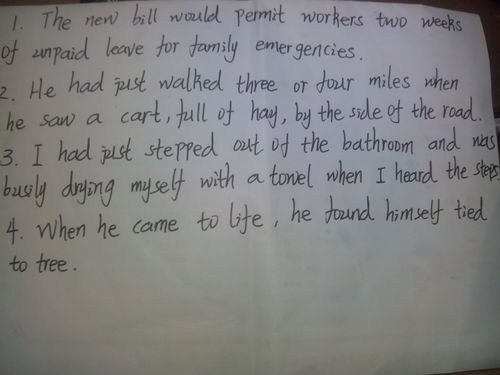 1. The new bill would permit workers two weeks
of unpaid leave for family emergencies.
2. He had just walked three or four miles when
he saw a cart, full of hay, by the side of the road.
3. I had just stepped out of the bathroom and was
busily drying myself with a towel when I heard the steps.
4. When he came to life, he found himself tied
to tree.